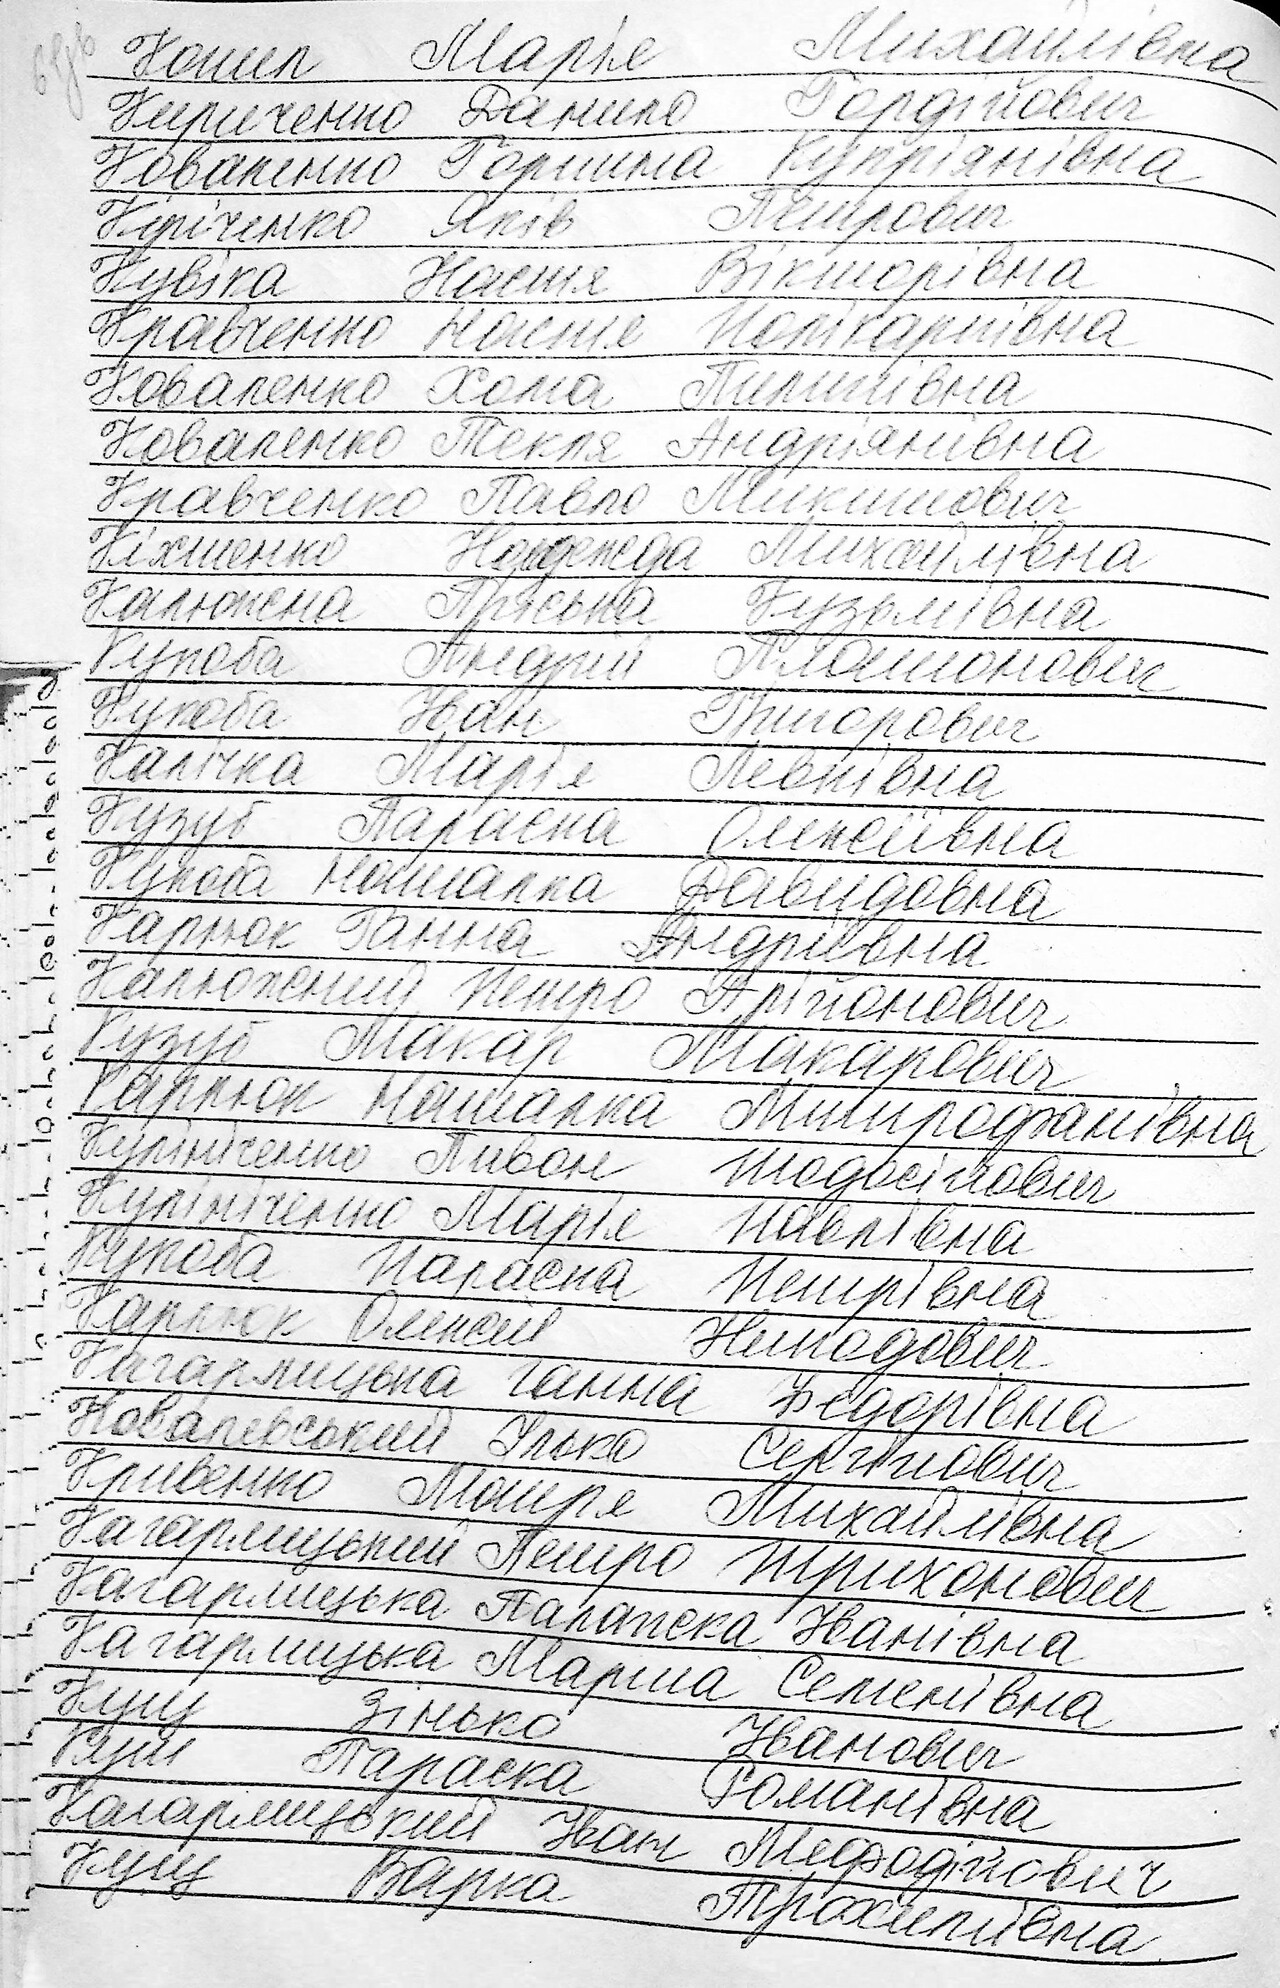 Кошел Марія Михайлівна
Кириченко Данило Гордійович
Коваленко Горпина Купріянівна
Кіріченко Яків Петрович
Кувіка Настя Вікторівна
Кравченко Настя Полікарпівна
Коваленко Хома Пилипівна
Коваленко Текля Андріянівна
Кравченко Павло Микитович
Кіхтенко Надежда Михайлівна
Калюжна Пріська Кузьмівна
Кукоба Андрій Платонович
Кукоба Іван Григорович
Калічка Марія Левківна
Кузуб Параска Олексіївна
Кукоба Наталка Давидовна
Карнюк Ганна Андріївна
Калюжний Петро Арійонович
Кузуб Макар Макарович
Карнюк Наталка Митрофанівна
Купініченко Пивон Тодосійович
Купініченко Марія Павлівна
Кукоба Параска Петрівна
Карнюк Олексій Никодович
Кагармицька Ганна Федорівна
Ковалевський Улько Сергійович
Кривенко Мотря Михайлівна
Кагармицький Петро Трихонович
Кагармицька Палажка Іванівна
Кагармицька Марина Семенівна
Кущ Зінько Іванович
Кущ Параска Романівна
Кагармицький Іван Мефодійович
Кущ Варка Трохимівна